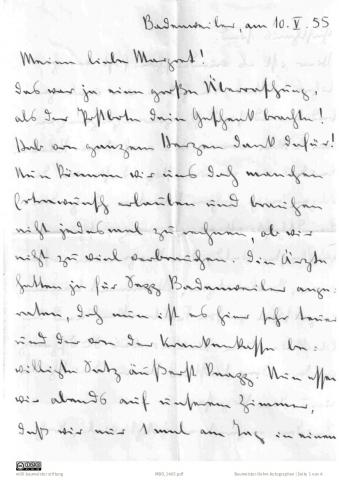 Badenweiler, am 10. V. 55
Meine liebe Margret!
das war ja eine große Überraschung,
als der Postbote dein Geschenk brachte!
Hab von ganzem Herzen Dank dafür!
Nun können wir uns doch manchen
Extrawunsch erlauben und brauchen
nicht jedesmal zu rechnen, ob wir
nicht zu viel verbrauchen. Die Ärzte
hatten ja für Badenweiler ange-
raten, doch nun ist es hier sehr teuer
und der von der Krankenkasse be-
willigte Satz äußerst knapp. Nun essen
wir abends auf unserem Zimmer,
daß wir nur 1 mal am Tag in einem
willi baumeister stiftung
Baumeister-Rohre Autographen | Seite 1 von 4